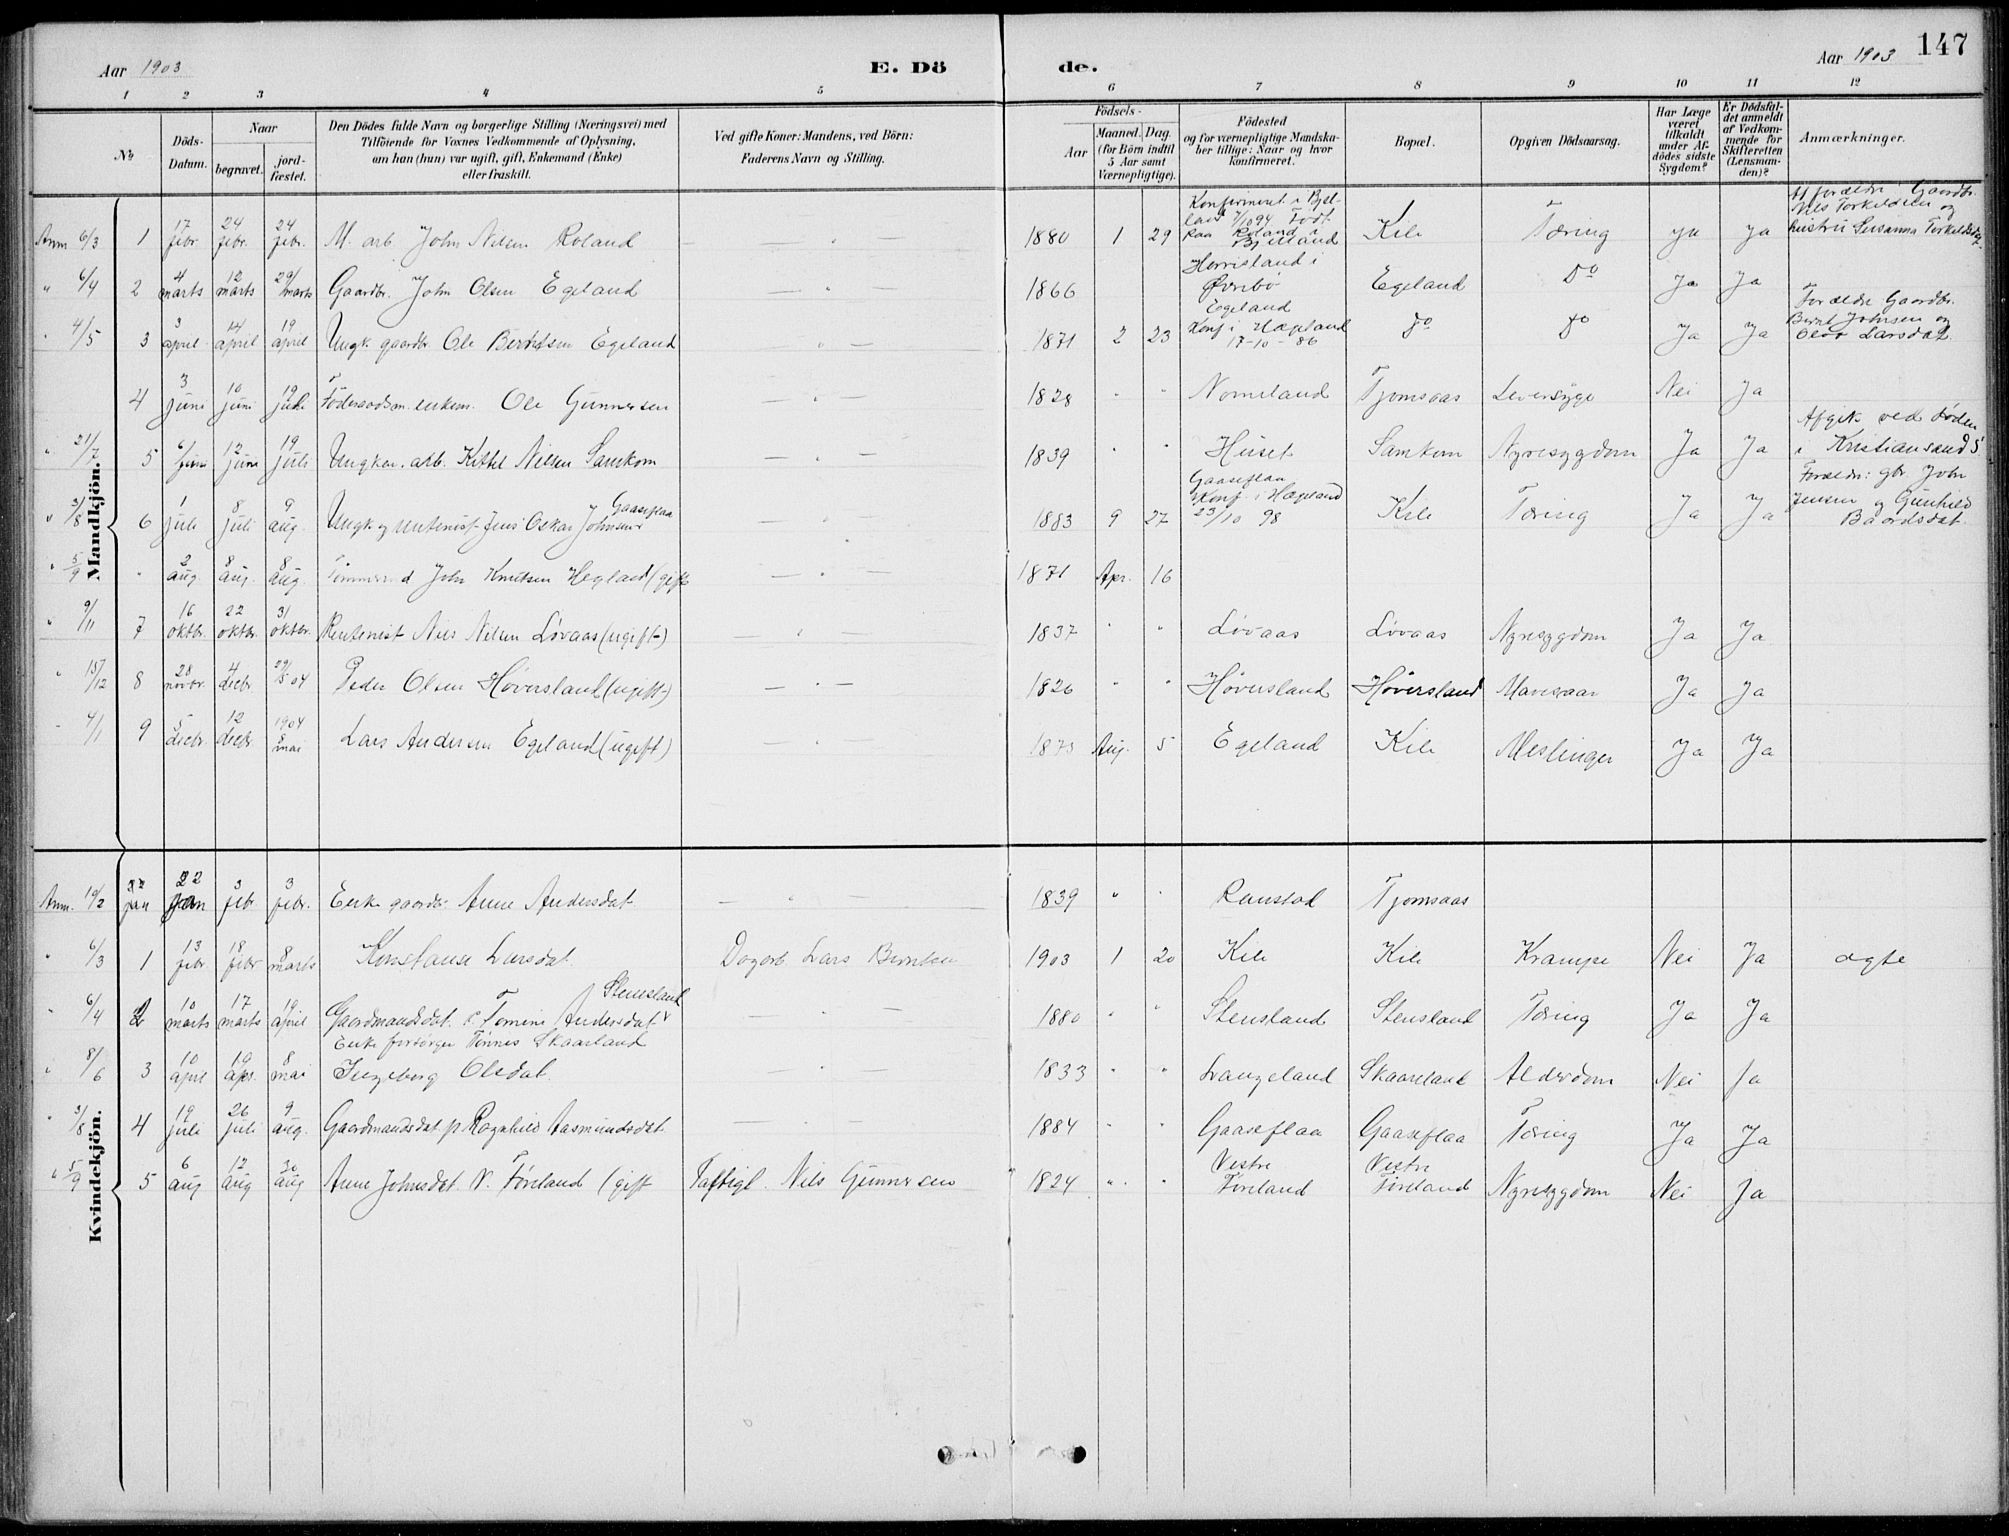 147
Aar 1903 E. Dö de. Aar 1903
1 2 3 4 5 6 7 8 9 10 11 12
No
Döds-Datum.
Naar
begravet.
jord-fæstet.
Den Dödes fulde Navn og borgerlige Stilling (Næringsvei) med
Tilföiende for Voxnes Vedkommende af Oplysning,
om han (hun) var ugift, gift, Enkemand (Enke)
eller fraskilt.
Ved gifte Koner: Mandens, ved Börn:
Faderens Navn og Stilling.
Födsels-
Aar
Maaned. Dag.
(for Börn indtil
5 Aar samt
Værnepligtige).
Födested
og for værnepligtige Mandska-
ber tillige: Naar og hvor
Konfirmeret.
Bopæl.
Opgiven Dödsaarsag.
Har Læge
været
tilkaldt
under Af-
dödes sidste
Sygdom?
Er Dödsfal-
det anmeldt
af Vedkom-
mende for
Skifteretten
(Lensman-
den)?
Anmærkninger.
Mandkjön.
Anm 6/3 1 17 febr. 24 febr. 24 febr. M. arb. John Nilsen Roland 1880 1 29 Konfirmeret i Bjel-
land 7/10 94 Født
paa Roland i
Bjelland Kile Tæring ja ja Forældre Gaardbr.
Nils Torkildsen og
hustru Susanna Torkildsdat.
" 6/4 2 4 marts 12 marts 29/ marts Gaardbr. John Olsen Egeland 1866 Herrisland i
Øvrebø Egeland Do Ja Ja
" 4/5 3 3 april 14 april 19 april Ungk. gaardbr. Ole Berntsen Egeland 1871 2 23 Egeland
Konf. i Hægeland
17-10-86 Do Do Ja Ja Forældre Gaardbr.
Bernt Johnsen og
Larsdat.
4 3 juni 10 juni 19 juli Føderaadsm. enkem. Ole Gunnersen 1828 " " Nomeland Tjomsaas Leversyge Nei Ja
" 21/7 5 6/juni 12 juni 19 juli Ungkar. arb. Kittel Nilsen Samkom 1839 " Huset Samkom Nyresygdom Ja Ja Afgik ved døden
i Kristiansand S
" 3/8 6 1 juli 8 juli 9 aug. Ungk og rentenist Jens Oskar Johnsen Gaaseflaa 1883 9 27 Gaaseflaa
Konf. i Hægeland
23/10 98 Kile Tæring Ja Ja Forældre: gbr John
Jensen og Gunhild
Baardsdat.
" 5/9 " 2 aug 8 aug. 8 aug. Tømmermd John Knutsen Hegland (gift 1871 Apr. 16
" 9/11 7 16 oktbr. 22 oktbr. 31 oktbr. Rentenist Nils Nilsen Løvaas (ugift) 1837 " " Løvaas Løvaas Nyresygdom Ja Ja
" 15/12 8 28 novbr. 4 decbr Peder Olsen Høversland (ugift) 1826 " " Høversland Høversland Mavesaar Ja Ja
" 4/1 9 5 decbr. 12 decbr. 1904 8 mai Lars Andersen Egeland (ugift) 1873 Aug. 5 Egeland Kile Meslinger Ja Ja
Kvindekjön.
Anm. 19/2 22 jan 22 jan 3 febr 3 febr. Enke gaardbr Anne Andersdat 1839 " " Ranstad Tjomsaas
" 6/3 1 13 febr 18 febr 8 marts Konstanse Larsdat. Dagarb. Lars Berntsen 1903 1 20 Kile Kile Krampe Nei Ja ægte
" 6/4 2 10 marts 17 marts 19 april Gaardmandsdat. p. Tomine Andersdat Stensland 1880 " " Stensland Stensland Tæring Ja Ja
" 8/6 3 10 april 19 apr. 8 mai Enke forsørger Tønnes Skaarland
Ingeborg Olsdat 1833 " " Langeland Skaareland Alderdom Nei Ja
" 3/8 4 19 juli 26 juli 9 aug. Gaardmandsdat p Ragnhild Aasmundsdat 1884 " " Gaaseflaa Gaaseflaa Tæring Ja Ja
" 5/9 5 6 aug 12 aug 30 aug Anne Johnsdat. V. Føreland (gift Fattigl. Nils Gunnersen 1824 " " Vestre
Føreland Vestre
Føreland Nyresygdom Nei Ja